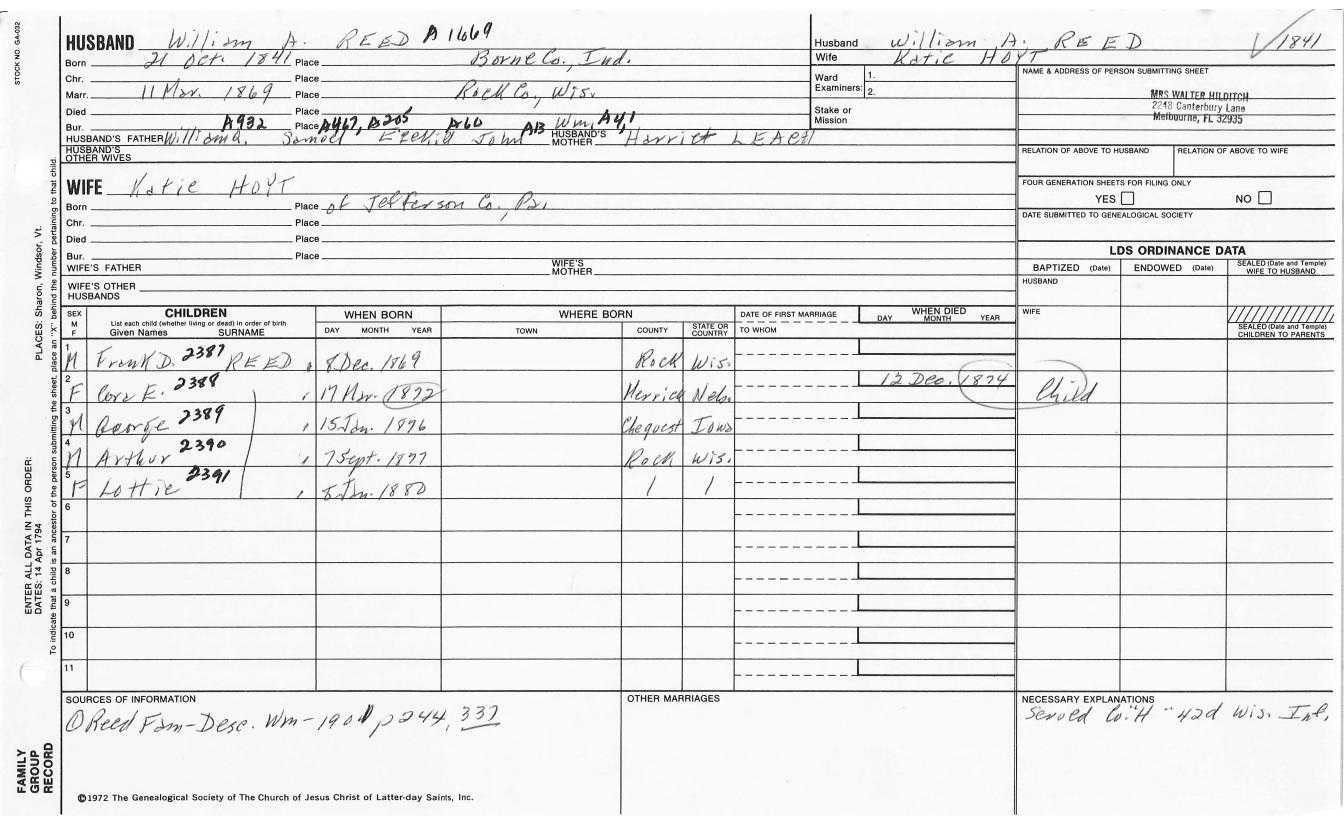 STOCK NO. GA-032
HUSBAND William A. REED A1669
Born 21 Oct. 1841 Place Borne Co., Ind.
Chr. Place
Marr. 11 Mar. 1869 Place Rock Co., Wis.
Died Place
Bur. A932 Place A467, A205 A60 A13 Wm, A4,1
HUSBAND'S FATHER William A. Samuel Ezekiel John HUSBAND'S MOTHER Harriet LEACH
HUSBAND'S OTHER WIVES
Husband William A. REED √1841
Wife Katie HOYT
Ward Examiners: 1. 2.
Stake or Mission
NAME & ADDRESS OF PERSON SUBMITTING SHEET
MRS WALTER HILDITCH
2248 Canterbury Lane
Melbourne, FL 32935
RELATION OF ABOVE TO HUSBAND RELATION OF ABOVE TO WIFE
FOUR GENERATION SHEETS FOR FILING ONLY
YES NO
DATE SUBMITTED TO GENEALOGICAL SOCIETY
WIFE Katie HOYT
Born Place of Jefferson Co., Pa.
Chr. Place
Died Place
Bur. Place
WIFE'S FATHER WIFE'S MOTHER
WIFE'S OTHER HUSBANDS
LDS ORDINANCE DATA
BAPTIZED (Date) ENDOWED (Date) SEALED (Date and Temple) WIFE TO HUSBAND
HUSBAND
WIFE
SEALED (Date and Temple) CHILDREN TO PARENTS
SEX M F CHILDREN List each child (whether living or dead) in order of birth Given Names SURNAME
WHEN BORN DAY MONTH YEAR
WHERE BORN TOWN COUNTY STATE OR COUNTRY
DATE OF FIRST MARRIAGE TO WHOM
WHEN DIED DAY MONTH YEAR
1 M Frank D. 2387 REED 8 Dec. 1869 Rock Wis.
2 F Cora E. 2388 17 Mar. 1872 Merrick Neb. 12 Dec. 1874 Child
3 M George 2389 15 Jan. 1876 Chequest Iowa
4 M Arthur 2390 7 Sept. 1877 Rock Wis.
5 F Lottie 2391 8 Jan. 1880 / /
6
7
8
9
10
11
SOURCES OF INFORMATION
① Reed Fam-Desc. Wm-1901 p244, 337
OTHER MARRIAGES
NECESSARY EXPLANATIONS
Served Co. "H" 42d Wis. Inf.
©1972 The Genealogical Society of The Church of Jesus Christ of Latter-day Saints, Inc.
FAMILY GROUP RECORD
ENTER ALL DATA IN THIS ORDER:
DATES: 14 Apr 1794
PLACES: Sharon, Windsor, Vt.
To indicate that a child is an ancestor of the person submitting the sheet, place an "X" behind the number pertaining to that child.